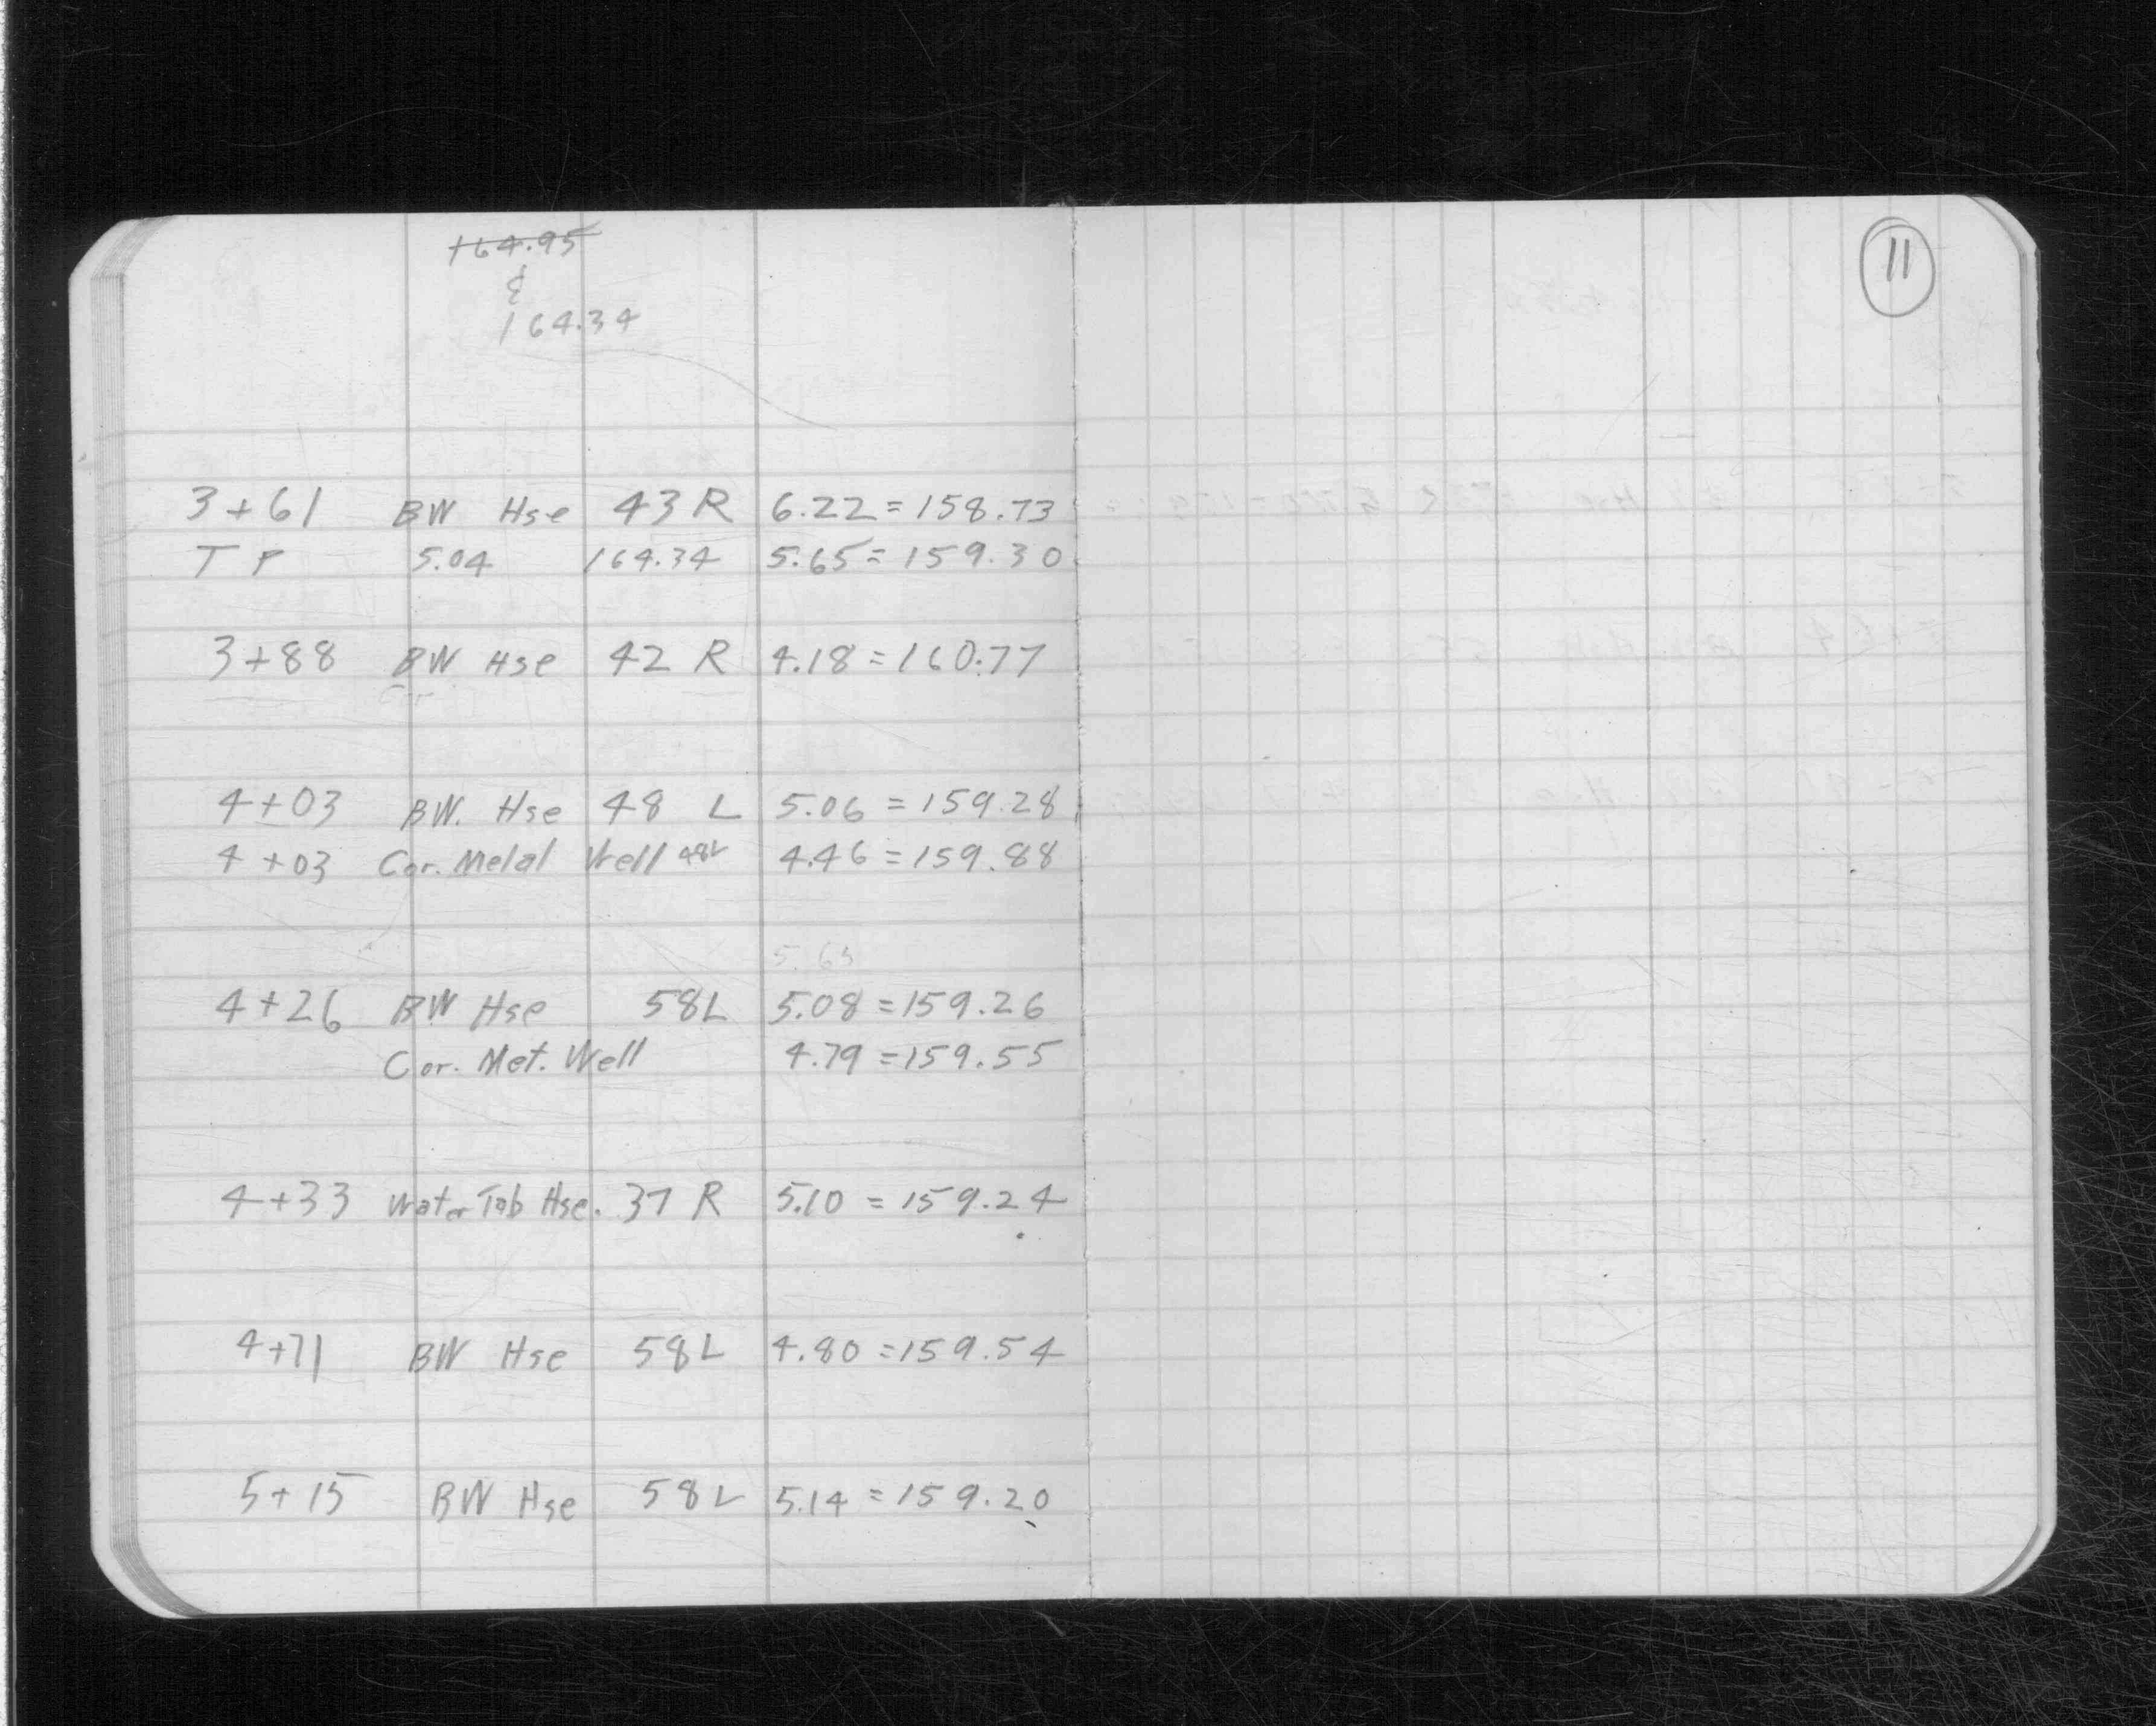 164.95
&
164.34
11
3+61 BW Hse 43 R 6.22 = 158.73
T P 5.04 164.34 5.65 = 159.30
3+88 BW Hse 42 R 4.18 = 160.77
4+03 BW. Hse 48 L 5.06 = 159.28
4+03 Cor. Metal Well 48L 4.46 = 159.88
5.63
4+26 BW Hse 58L 5.08 = 159.26
Cor. Met. Well 4.79 = 159.55
4+33 Water Tab Hse. 37 R 5.10 = 159.24
4+71 BW Hse 58L 4.80 = 159.54
5+15 BW Hse 58L 5.14 = 159.20